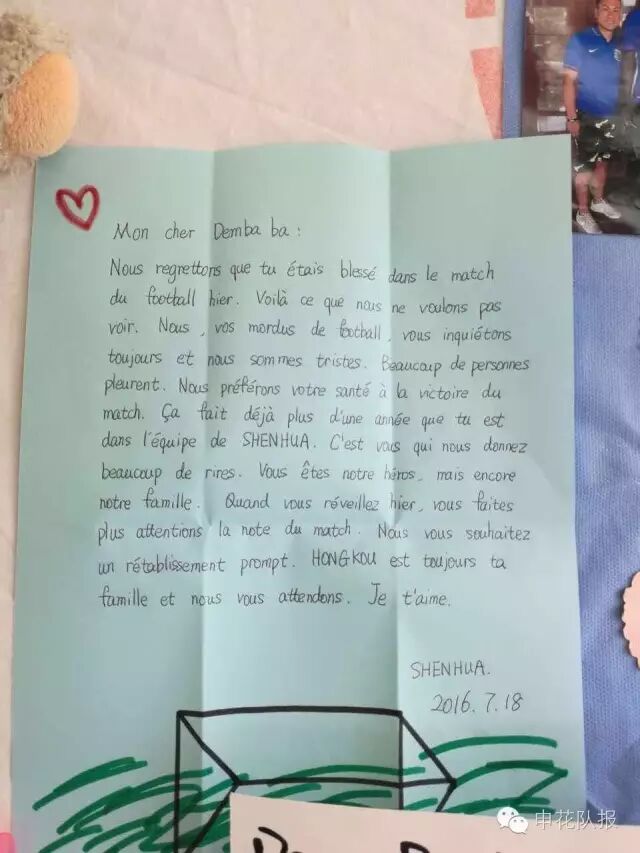 Mon cher Demba ba :
Nous regrettons que tu étais blessé dans le match
du football hier. Voilà ce que nous ne voulons pas
voir. Nous, vos mordus de football, vous inquiétons
toujours et nous sommes tristes. Beaucoup de personnes
pleurent. Nous préférons votre santé à la victoire du
match. Ça fait déjà plus d'une année que tu est
dans l'équipe de SHENHUA. C'est vous qui nous donnez
beaucoup de rires. Vous êtes notre héros, mais encore
notre famille. Quand vous réveillez hier, vous faites
plus attentions la note du match. Nous vous souhaitez
un rétablissement prompt. HONGKOU est toujours ta
famille et nous vous attendons. Je t'aime.
SHENHUA.
2016.7.18
申花队报